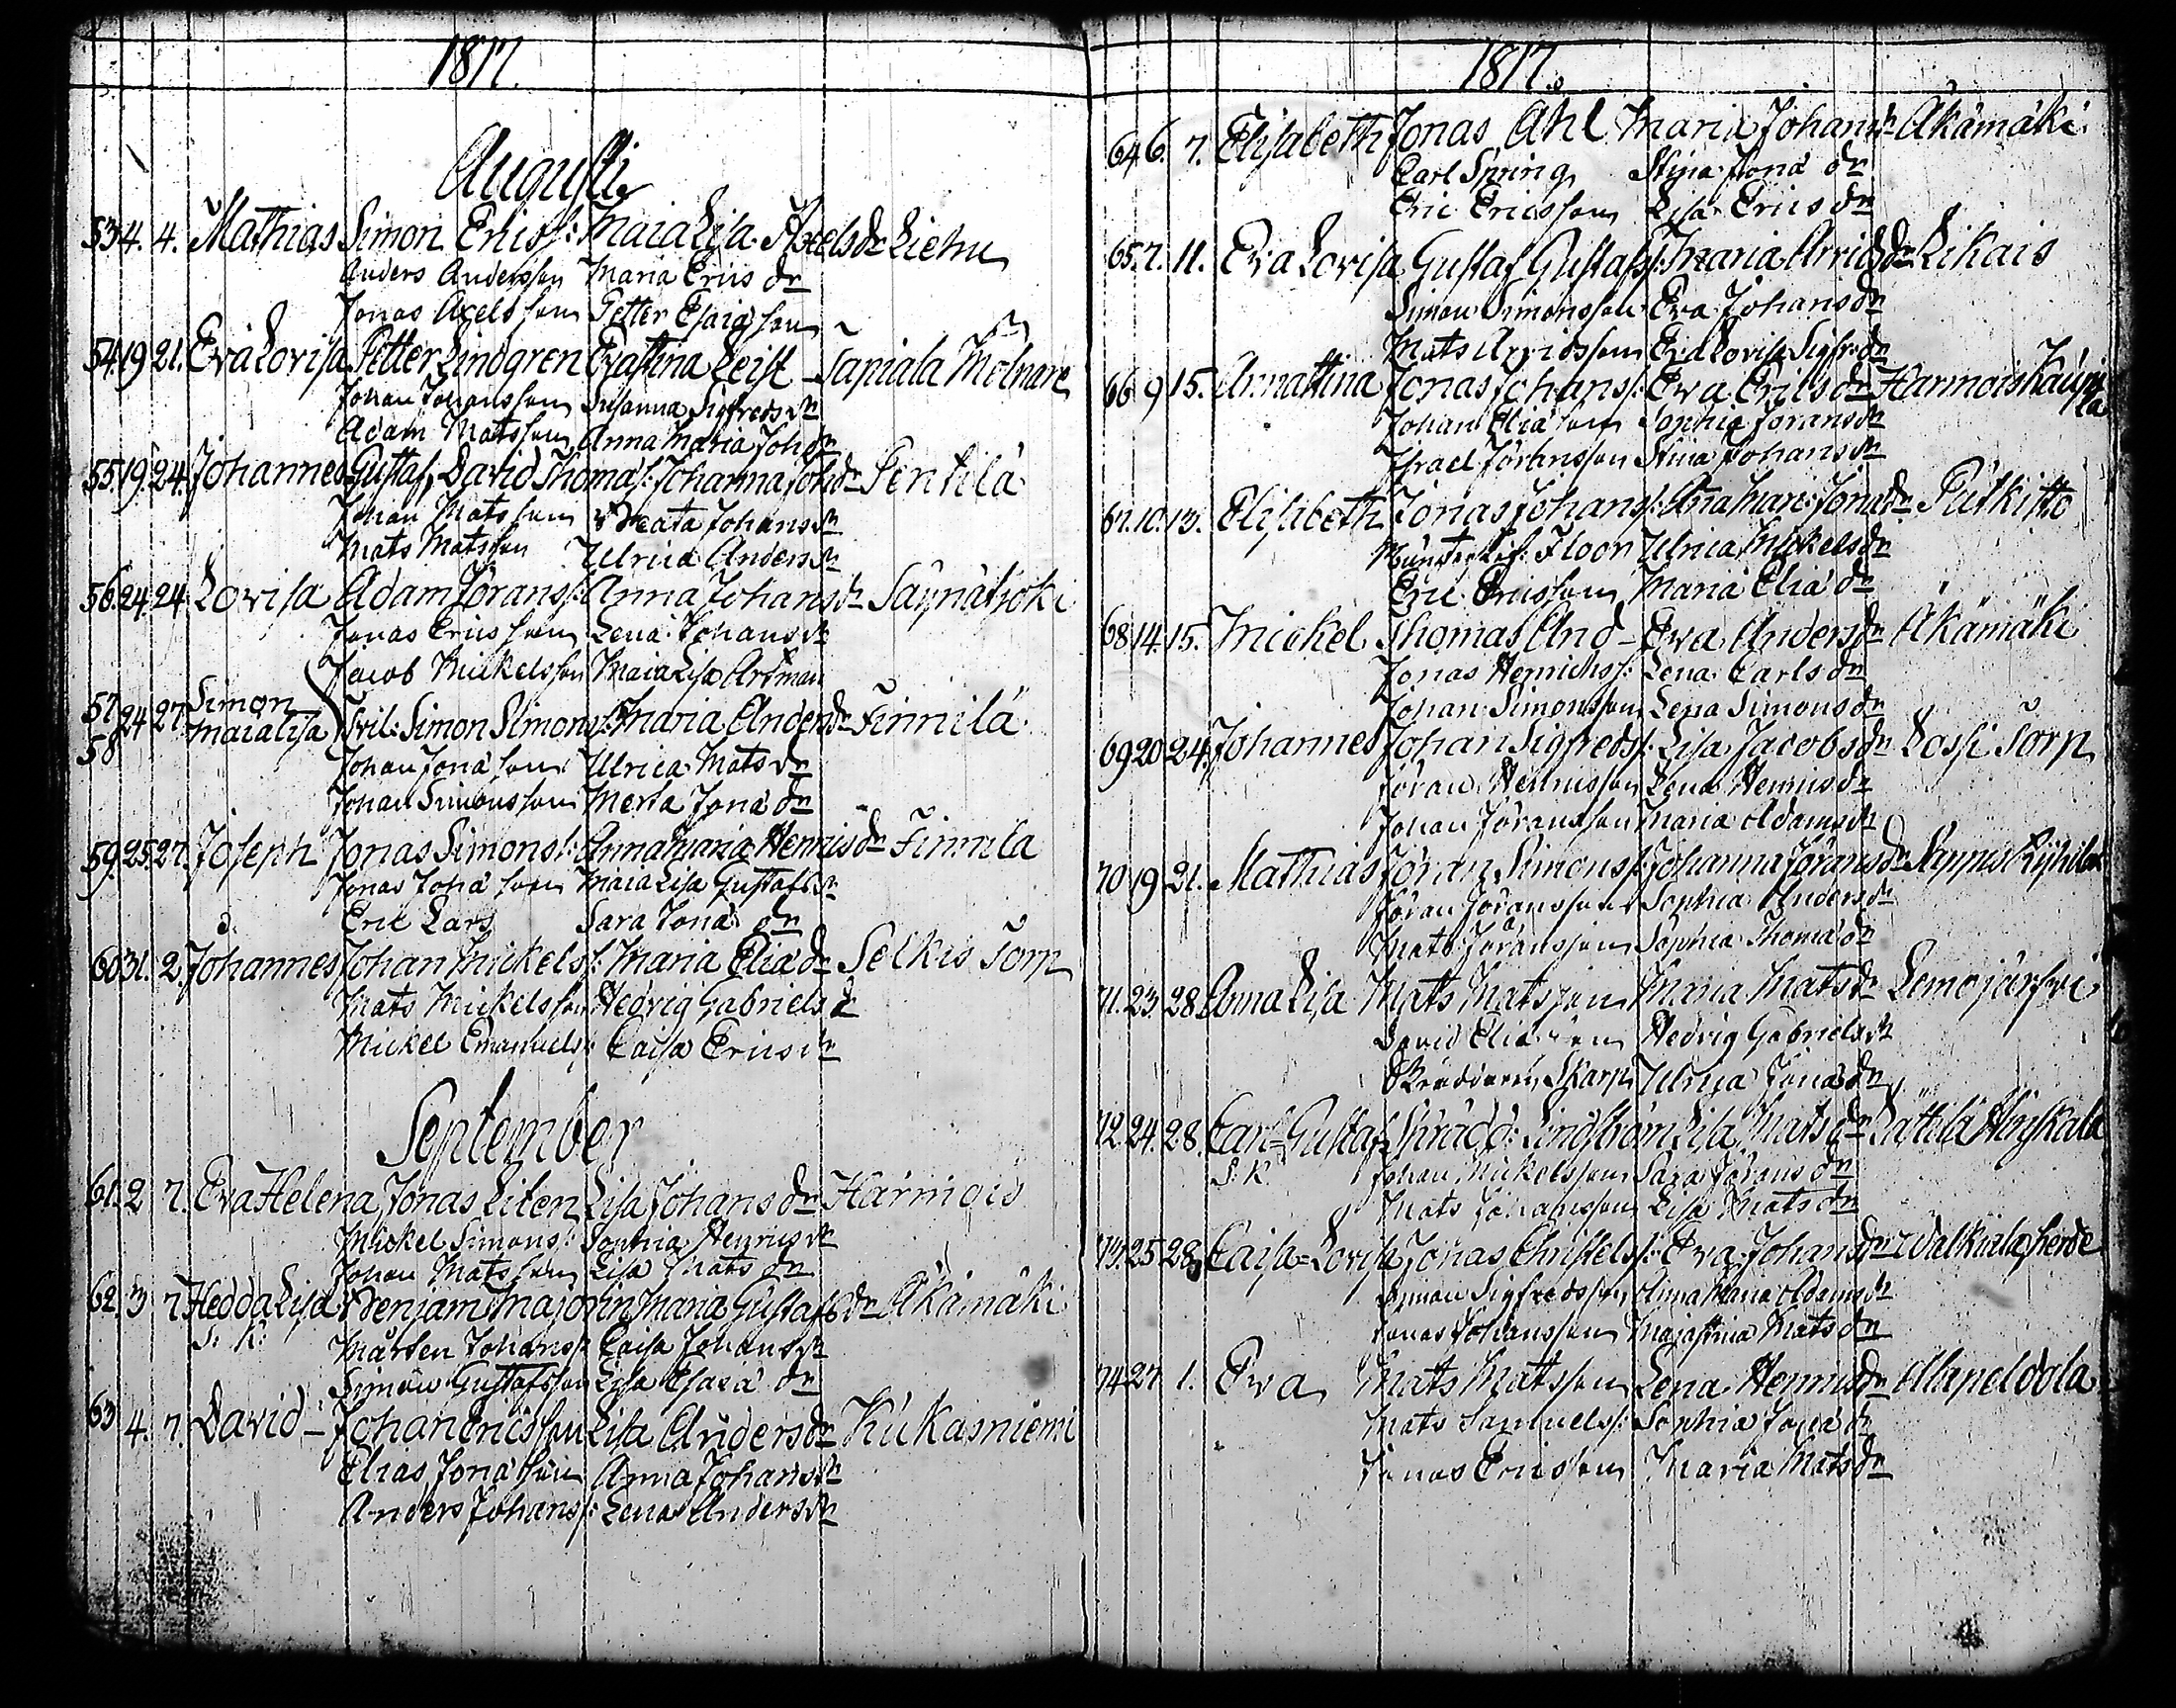 1817.
Augusti
53 4. 4. Mathias Simon Ericss: Maia Lisa Axelsdr Liehu
Anders Andersson Maria Ericsdr
Jonas Axelsson Petter Esaiæson
54. 19 21. Eva Lovisa Petter Lindgren Evastina Leist Tapiala Mölnare
Johan Johansson Susanna Sigfredsdr
Adam Matsson Anna Maria Johdr
55. 19. 24. Johannes Gustaf David Thomæs: Johanna Johsdr Pentilä
Johan Matsson Beata Johansdr
Mats Matsson Ulrica Andersdr
56. 24. 24 Lovisa Adam Jörans: Anna Johansdr Säynätjoki
Jonas Ericsson Lena Johansdr
Jacob Mickelsson Maia Lisa Artman
57 24 27. Simon
58 Maialisa Simon Simons: Maria Andersdr Finnilä
Johan Jonæson Ulrica Matsdr
Johan Simonsson Jonædr
59. 25. 27. Joseph Jonas Simons: Annamaria Henricsdr Finnilä
Jonas Jonæson Maia Lisa Gustafsdr
Eric Lars Sara Jonædr
60 31. 2. Johannes Johan Mickels: Maria Eliædr Selkis Torp
Mats Mickelsson Hedvig Gabrielsdr
Mickel Emanuels: Caisa Ericsdr
September
61. 2 7. Eva Helena Jonas Liten Lisa Johansdr Harmois
Mickel Simons: Sophia Henricsdr
Johan Matsson Lisa Matsdr
62. 3 7 Hedda Lisa Benjam Majorin Maria Gustafsdr Äkämäki
S. K: Mårten Johanss: Caisa Johansdr
Simon Gustafsson Lisa Esaiædr
63 4. 7. David – Johan Ericsson Lisa Andersdr Kukasniemi
Elias Jonæson Anna Johansdr
Anders Johans: Lena Andersdr
1817.
64. 6. 7. Elisabeth Jonas Ahl Maria Johansdr Äkämäki.
Carl Spring Stina Jonædr
Eric Ericsson Lisa Ericsdr
65. 7. 11. Eva Lovisa Gustaf Gustafs: Maria Arvidsdr Likais
Simon Simonsson Eva Johansdr
Mats Arvidsson Eva Lovisa Sigfr:dr
66 9 15. Annastina Jonas Johans: Eva Ericsdr Harmois Kaup
Johan Eliæson Sophia Joransdr la
Israel Joransson Stina Johansdr
67. 10. 13. Elisabeth Jonas Johans: Ana Mari: Jonædr Putkisto
Floor Ulrica Mickelsdr
Eric Ericsson Maria Eliædr
68 14. 15. Mickel Thomas And– Eva Andersdr Äkämäki
Jonas Henrichss: Lena Carlsdr
Johan Simonsson Lena Simonsdr
69 20 24. Johannes Johan Sigfreds: Lisa Jacobsdr Torp
Jöran Henricsson Lena Henricsdr
Johan Jöransson Maria Adamsdr
70 19 21. Mathias Jöran Simons: Johanna Jöransdr
Jöran Jöransson Sophia Andersdr
Mats Jöransson Sophia Thomædr
71. 23. 28 Anna Lisa Mats Matsson Maria Matsdr Lemojärfvi
David Eliæson Hedvig Gabrielsdr
Skarp Ulrica Jonædr
72. 24. 28. Carl=Gustaf Skrädd: Lindström Lisa Matsdr
S. K. Johan Mickelsson Sara Joransdr
Mats Johansson Lisa Matsdr
73. 25 28. Caisa=Lovisa Jonas Christels: Eva Johansdr Walkiala herde
Simon Sigfredsson Anna Maria Adamsdr
Jonas Johansson Majastina Matsdr
74 27 1. Eva Mats Matsson Lena Henricsdr
Mats Samuels: Sophia Jonædr
Jonas Ericsson Maria Matsdr